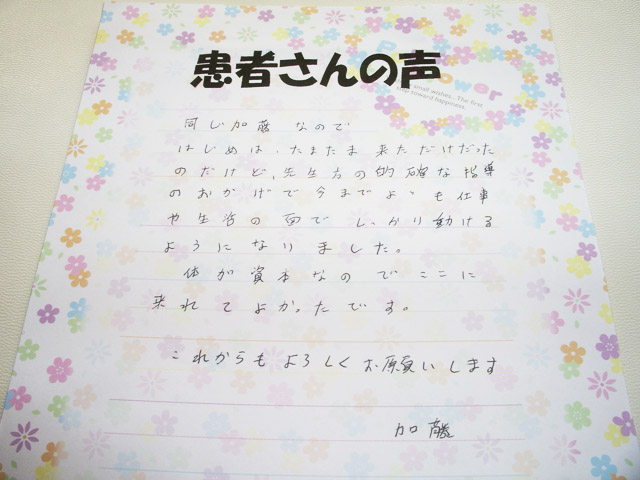 患者さんの声
Flower
small wishes...The first
step toward happiness.
同じ加藤なので
はじめは、たまたま来ただけだった
のだけど、先生方の的確な指導
のおかげで今までよりも仕事
や生活の面でしっかり動ける
ようになりました。
体が資本なのでここに
来れてよかったです。
これからもよろしくお願いします
加藤